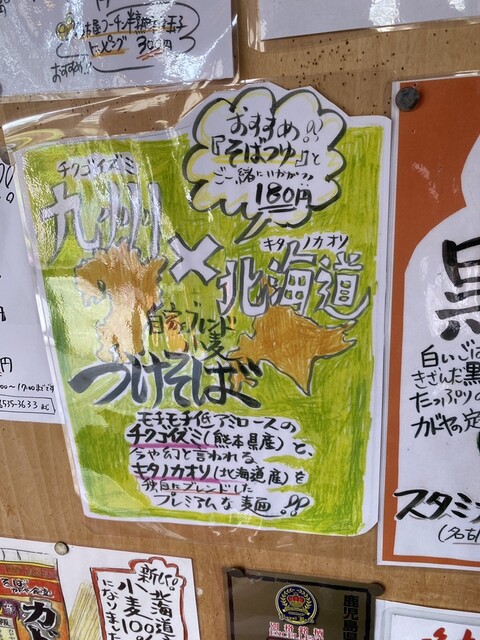 トッピング 300円
おすすめ!!
おすすめ!!
『そばつゆ』と
ご一緒にいかが?
180円
チクゴイズミ
九州
×
キタノカオリ
北海道
自家ブレンド
小麦
つけそば
モチモチ低アミロースの
チクゴイズミ(熊本県産)と、
今や幻と言われる
キタノカオリ(北海道産)を
独自にブレンドした
プレミアムな麺!!
円
535-3633
黒
白いごま
きざんだ黒
たっぷりの
ガヤの定
スタミ
新しい!!
北海道
小麦100%
になりま
鹿児島県